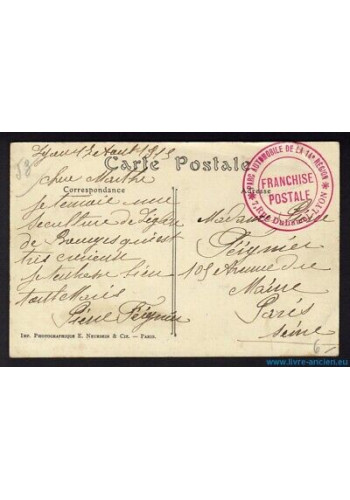 Lyon 13 Août 1915
Carte Postale
Correspondance
Adresse
58
chère Marthe
je t'envoie une
sculture de l'église
de Brou qui est
très curieuse
je t'embrasse bien
Pierre Peignier
Madame Pierre
Peignier
105 Avenue du
Maine
Paris
Seine
PARC AUTOMOBILE DE LA 14e RÉGION
FRANCHISE
POSTALE
LYON
Imp. Photographique E. Neurdein & Cie. — Paris.
6
www.livre-ancien.eu